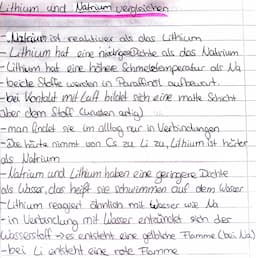 Lithium und Natrium vergleichen
- Natrium ist reaktiver als das Lithium
- Lithium hat eine niedrigere Dichte als das Natrium
- Lithium hat eine höhere Schmelztemperatur als Na
- beide Stoffe werden in Paraffinöl aufbewart.
- bei Kontakt mit Luft bildet sich eine matte Schicht
über dem Stoff (krusten artig)
- man findet sie im alltag nur in Verbindungen
- Die härte nimmt von Cs zu Li zu, Lithium ist härter
als Natrium
- Natrium und Lithium haben eine geringere Dichte
als Wasser, das heißt sie schwimmen auf dem Wasser
- Lithium reagiert ähnlich mit Wasser wie Na
- in Verbindung mit Wasser entzündet sich der
Wasserstoff → es entsteht eine gelbliche Flamme (bei Na)
- bei Li entsteht eine rote Flamme